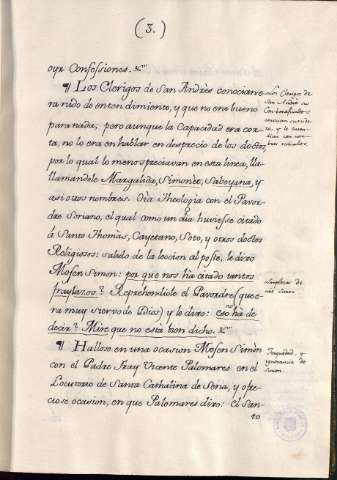 (3.)
oyr Confessiones. &c.
¶ Los Clerigos de San Andres conocieron
ra nido de entendimiento, y que no era bueno
para nada; pero aunque la Capacidad era cor-
ta, no lo era en hablar en desprecio de los doctos
por lo qual lo menospreciavan en esta linea, lla-
llamandole Margalida, Simonèt, Saboyana, y
asi otros nombres. Oìa Theologia con el Pavor-
dre Soriano, el qual como un dia huviesse citado
à Santo Thomàs, Cayetano, Soto, y otros doctos
Religiosos: salido de la leccion al poste, le dixo
Mosen Simon: por que nos ha citado tantos
fraylazos? Reprehendiole el Pavordre (que e-
ra muy siervo de Dios) y le dixo: eso ha de
decir? Mire que no està bien dicho. &c.
¶ Hallose en una ocasion Mosen Simòn
con el Padre Fray Vicente Palomares en el
Locutorio de Santa Cathalina de Sena, y ofre-
ciose ocasion, en que Palomares dixo: el San-
to
Los Clerigos de
San Andres su
simpleza de
Simon.
ignorancia de
Simon.